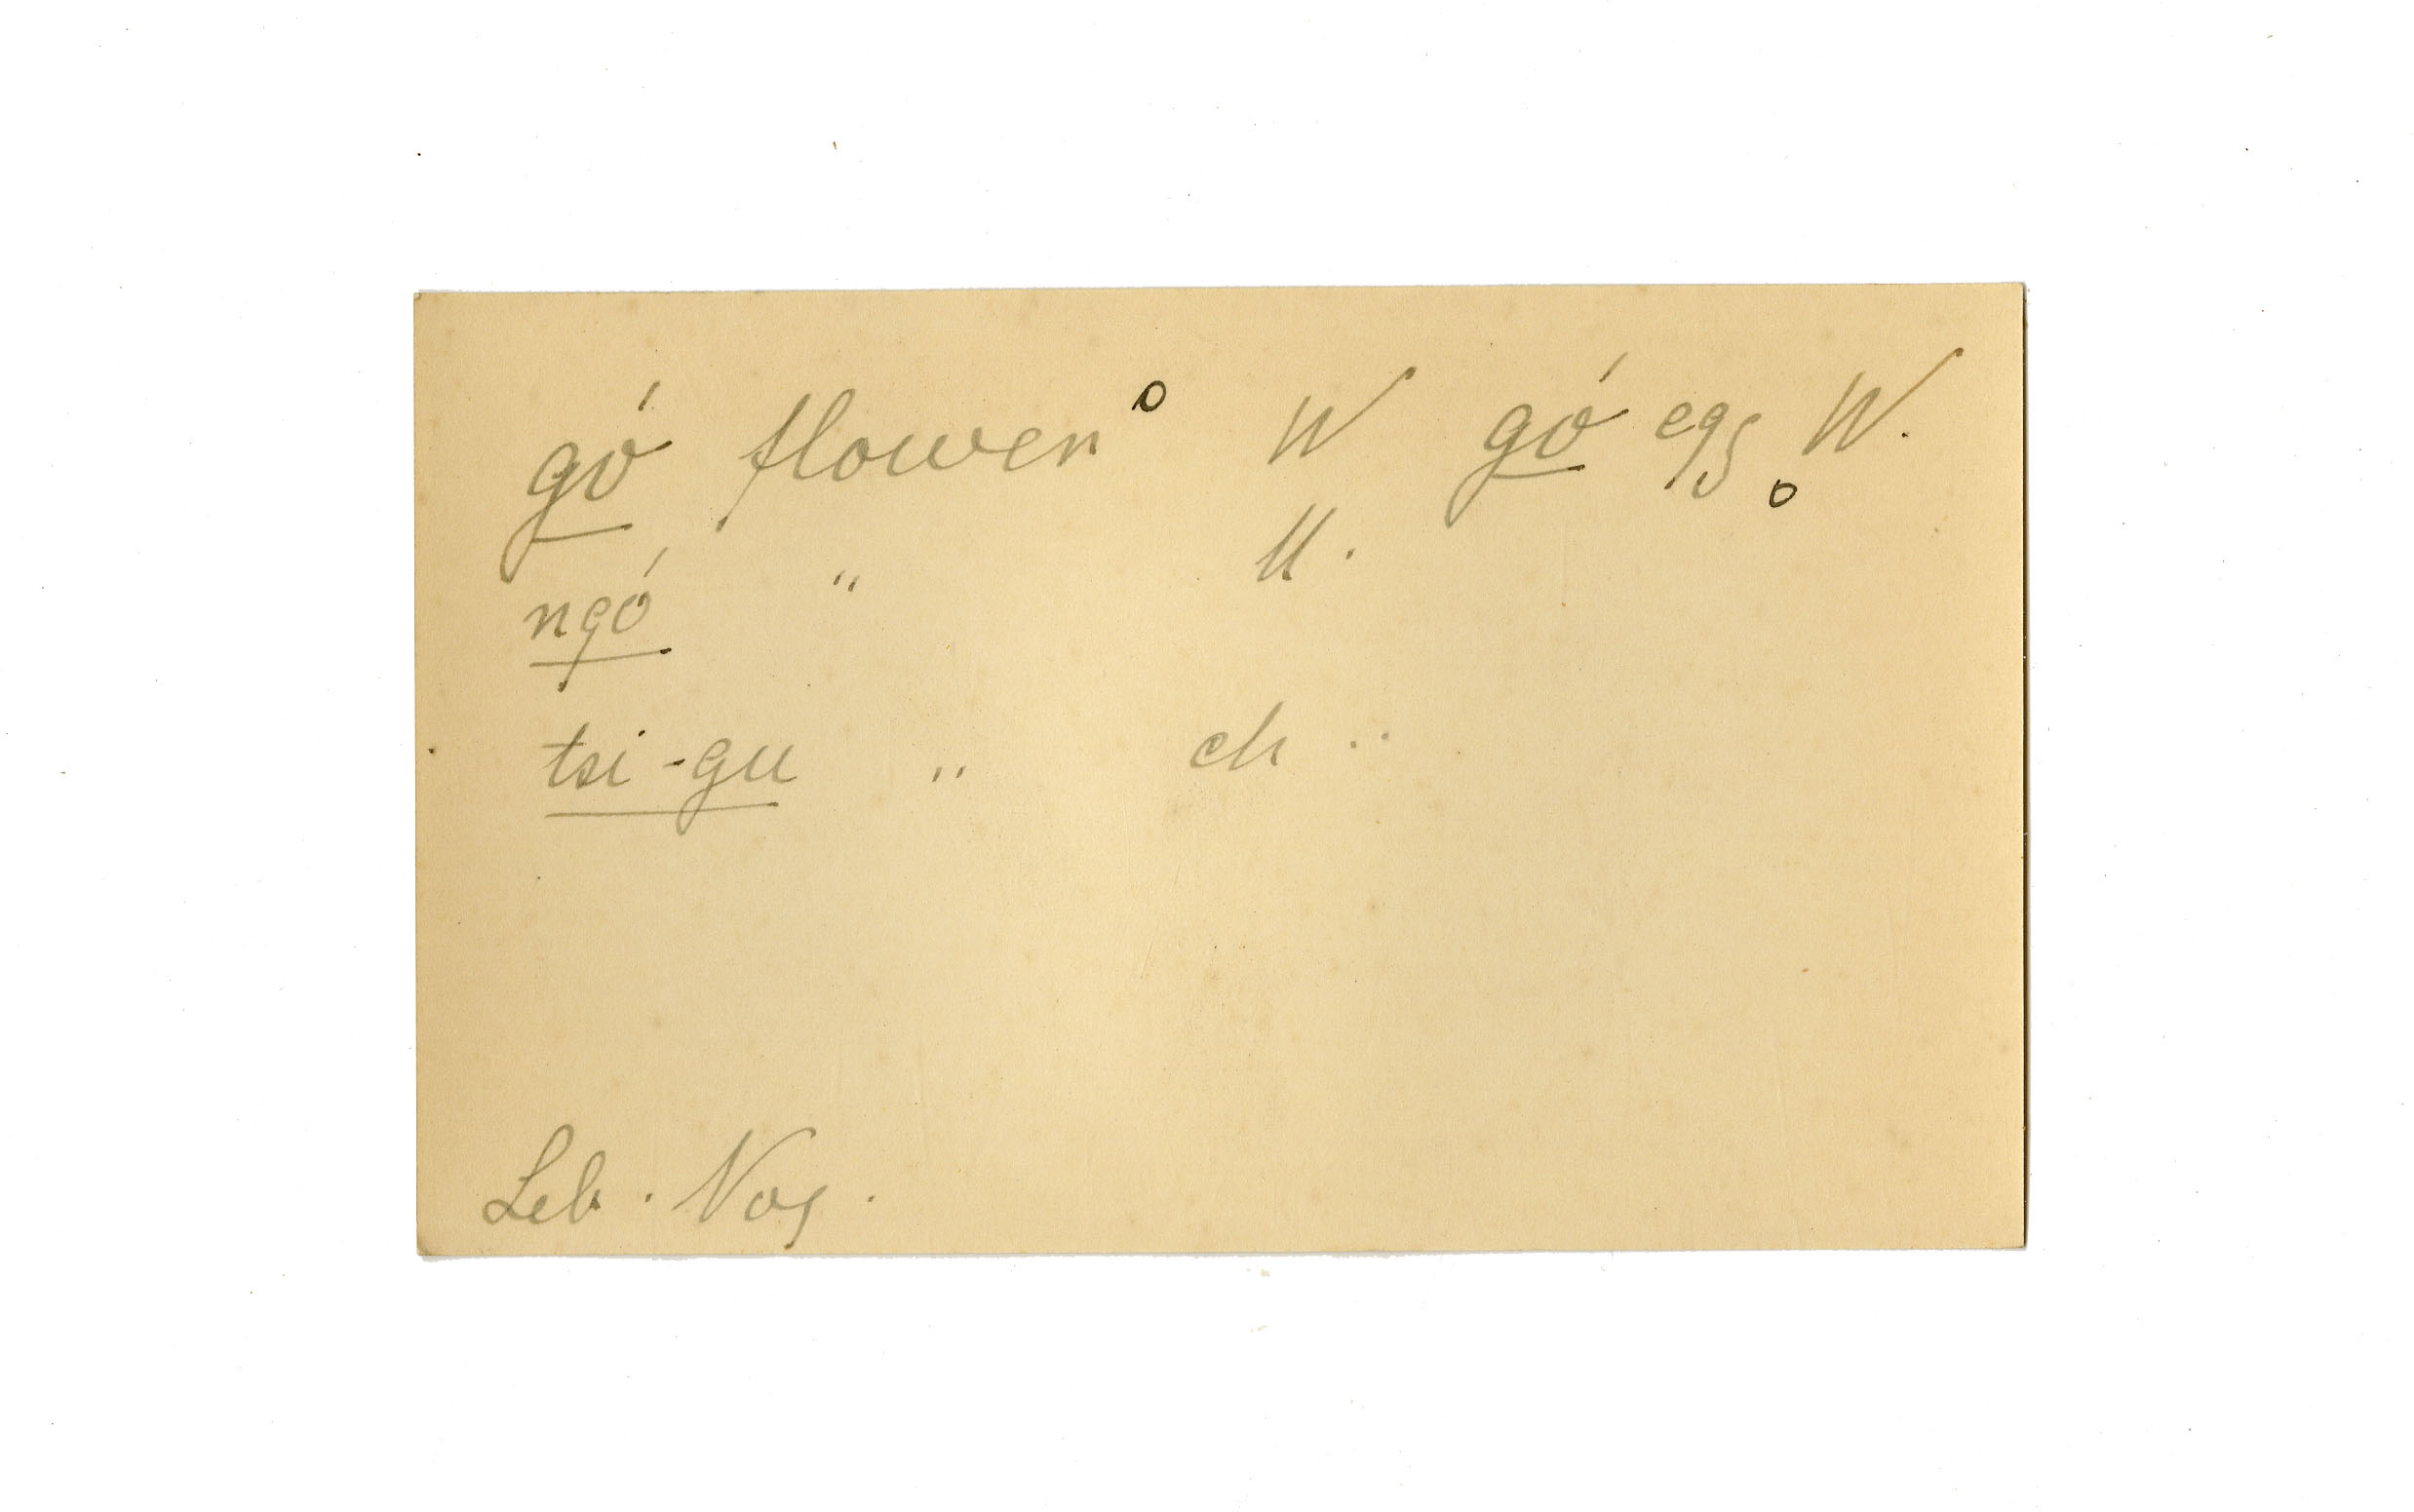 gó flower° W gó egg。 W.
ngó " U.
tsi-gu " ch ..
Leb. Voy.